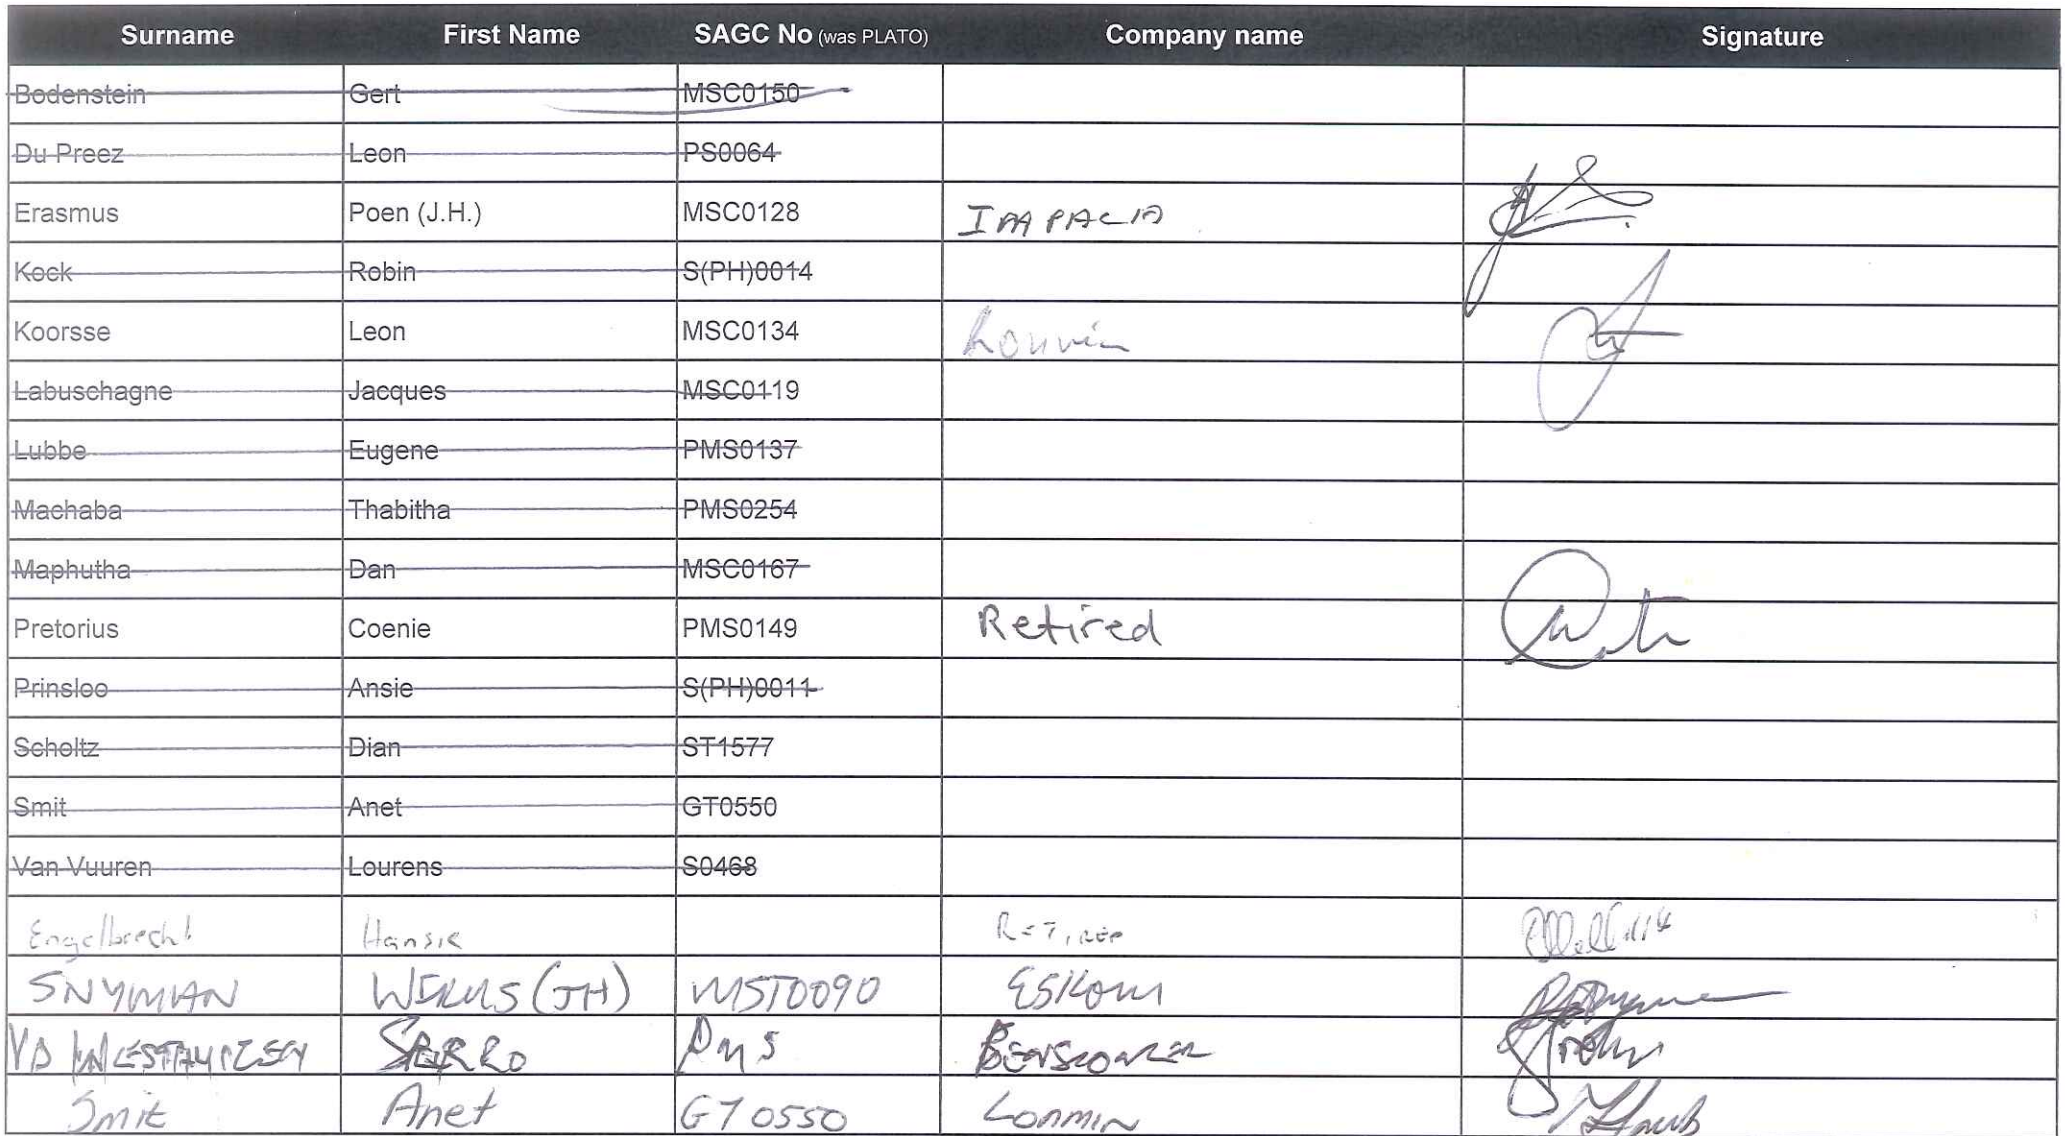 Surname First Name SAGC No (was PLATO) Company name Signature
Bodenstein Gert MSC0150
Du Preez Leon PS0064
Erasmus Poen (J.H.) MSC0128 IMPALA
Kock Robin S(PH)0014
Koorsse Leon MSC0134
Labuschagne Jacques MSC0119
Lubbe Eugene PMS0137
Machaba Thabitha PMS0254
Maphutha Dan MSC0167
Pretorius Coenie PMS0149 Retired
Prinsloo Ansie S(PH)0011
Scholtz Dian ST1577
Smit Anet GT0550
Van Vuuren Lourens S0468
Engelbrecht Hansie RETIRED
SNYMAN WIKUS (JH) MST0090 ESKOM
VD WESTHUIZEN PMS
Smit Anet GT0550 LONMIN